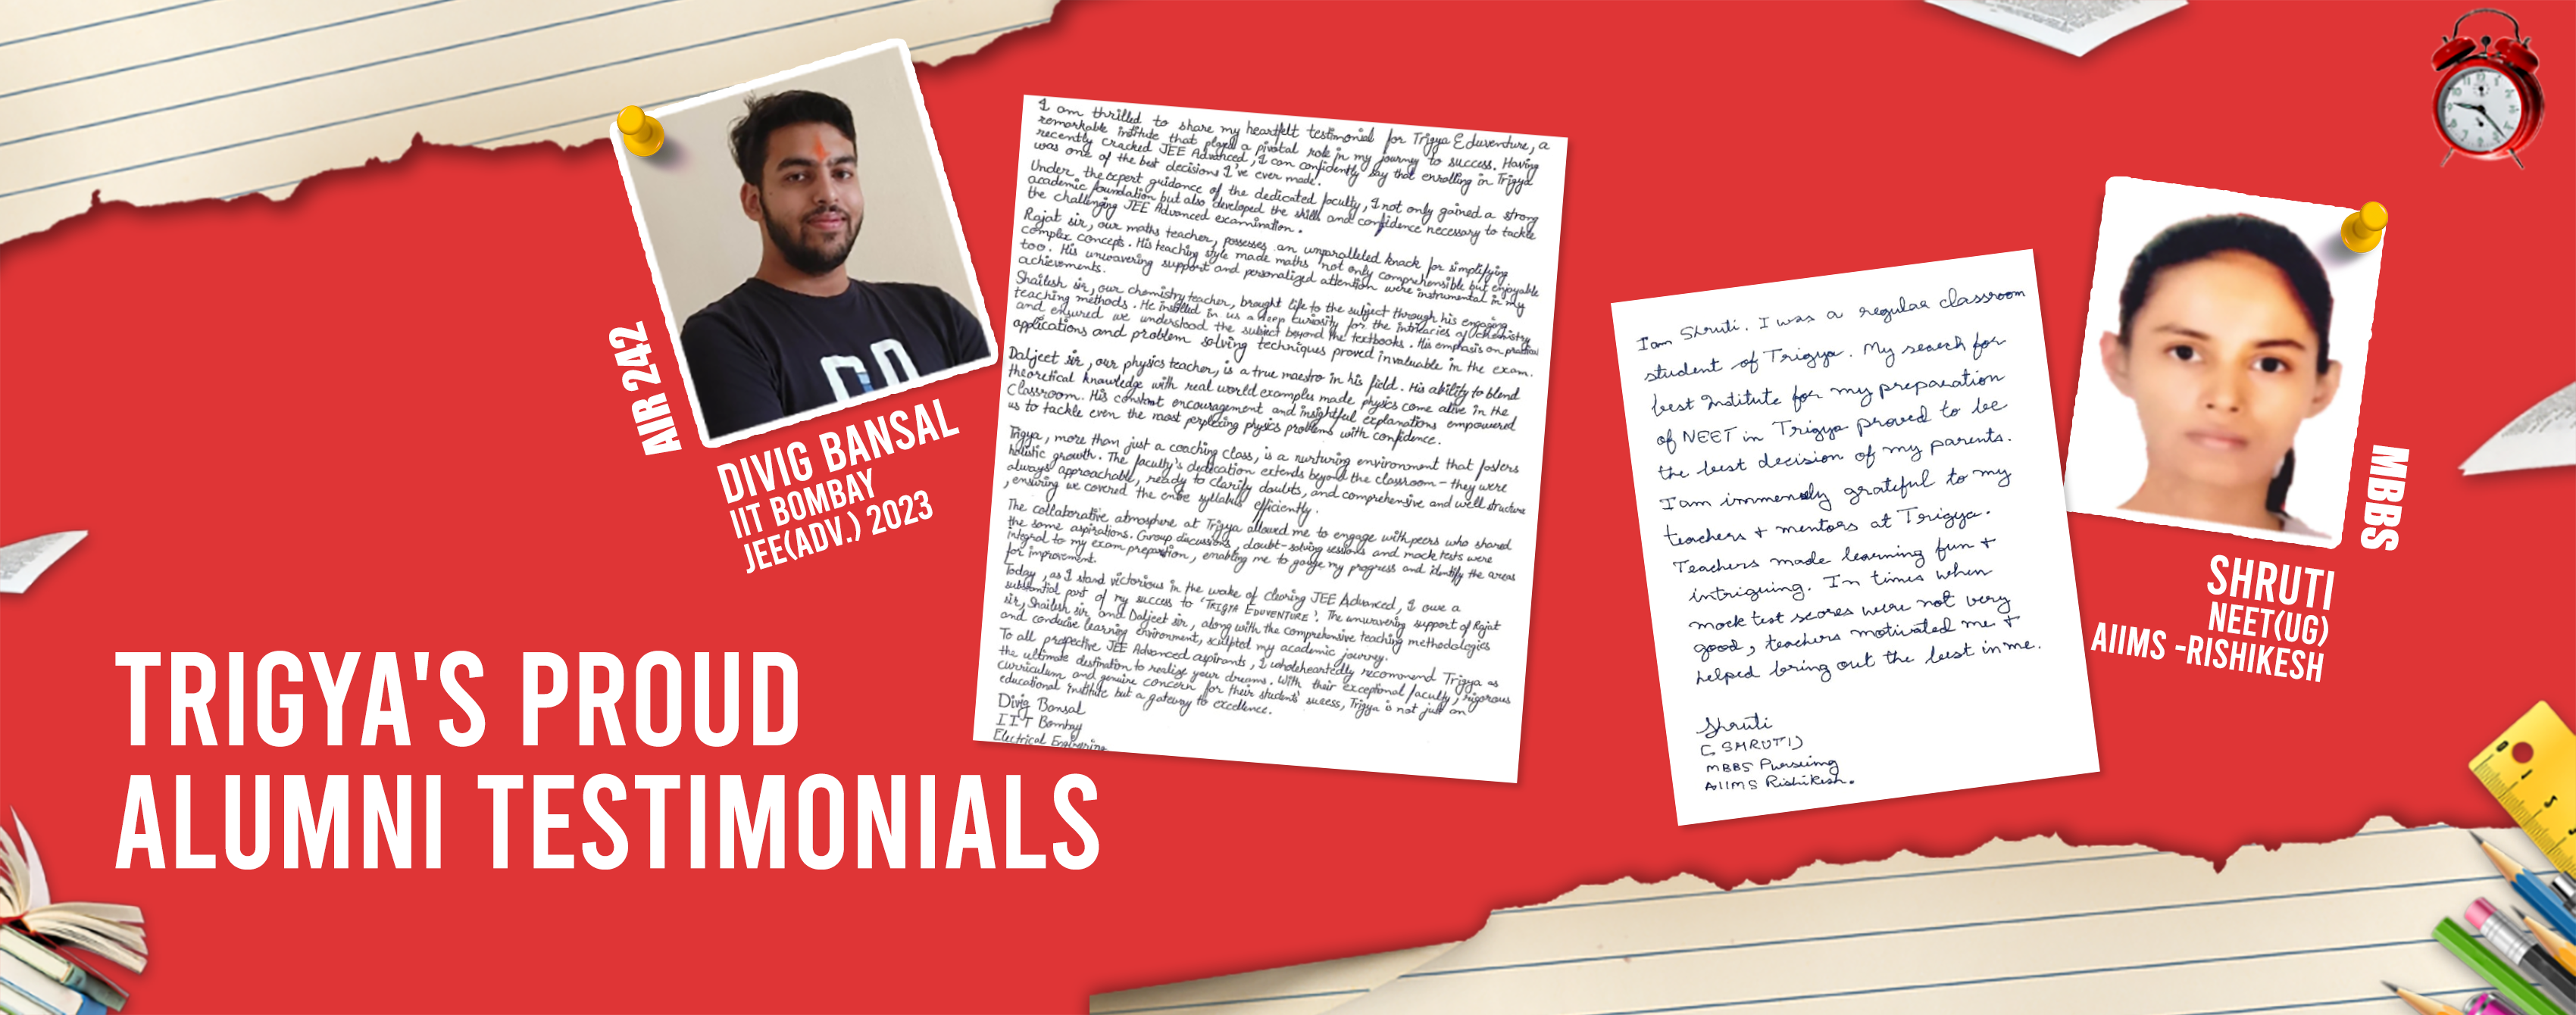 AIR 242
DIVIG BANSAL
IIT BOMBAY
JEE(ADV.) 2023
TRIGYA'S PROUD
ALUMNI TESTIMONIALS
I am thrilled to share my heartfelt testimonial for Trigya Eduventure, a
remarkable institute that played a pivotal role in my journey to success. Having
recently cracked JEE Advanced, I can confidently say that enrolling in Trigya
was one of the best decisions I've ever made.
Under the expert guidance of the dedicated faculty, I not only gained a strong
academic foundation but also developed the skills and confidence necessary to tackle
the challenging JEE Advanced examination.
Rajat sir, our maths teacher, possesses an unparalleled knack for simplifying
complex concepts. His teaching style made maths not only comprehensible but enjoyable
too. His unwavering support and personalized attention were instrumental in my
achievements.
Shailesh sir, our chemistry teacher, brought life to the subject through his engaging
teaching methods. He instilled in us a deep curiosity for the intricacies of chemistry
and ensured we understood the subject beyond the textbooks. His emphasis on practical
applications and problem solving techniques proved invaluable in the exam.
Daljeet sir, our physics teacher, is a true maestro in his field. His ability to blend
theoretical knowledge with real world examples made physics come alive in the
classroom. His constant encouragement and insightful explanations empowered
us to tackle even the most perplexing physics problems with confidence.
Trigya, more than just a coaching class, is a nurturing environment that fosters
holistic growth. The faculty's dedication extends beyond the classroom - they were
always approachable, ready to clarify doubts, and comprehensive and well structure
, ensuring we covered the entire syllabus efficiently.
The collaborative atmosphere at Trigya allowed me to engage with peers who shared
the same aspirations. Group discussions, doubt-solving sessions and mock tests were
integral to my exam preparation, enabling me to gauge my progress and identify the areas
for improvement.
Today, as I stand victorious in the wake of clearing JEE Advanced, I owe a
substantial part of my success to 'TRIGYA EDUVENTURE'. The unwavering support of Rajat
sir, Shailesh sir and Daljeet sir, along with the comprehensive teaching methodologies
and conducive learning environment, sculpted my academic journey.
To all prospective JEE Advanced aspirants, I wholeheartedly recommend Trigya as
the ultimate destination to realize your dreams. With their exceptional faculty, rigorous
curriculum and genuine concern for their students' success, Trigya is not just an
educational institute but a gateway to excellence.
Divig Bansal
IIT Bombay
Electrical Engineering
I am Shruti. I was a regular classroom
student of Trigya. My search for
best institute for my preparation
of NEET in Trigya proved to be
the best decision of my parents.
I am immensely grateful to my
teachers + mentors at Trigya.
Teachers made learning fun +
intriguing. In times when
mock test scores were not very
good, teachers motivated me +
helped bring out the best in me.
Shruti
(SHRUTI)
MBBS Pursuing
AIIMS Rishikesh.
MBBS
SHRUTI
NEET(UG)
AIIMS -RISHIKESH